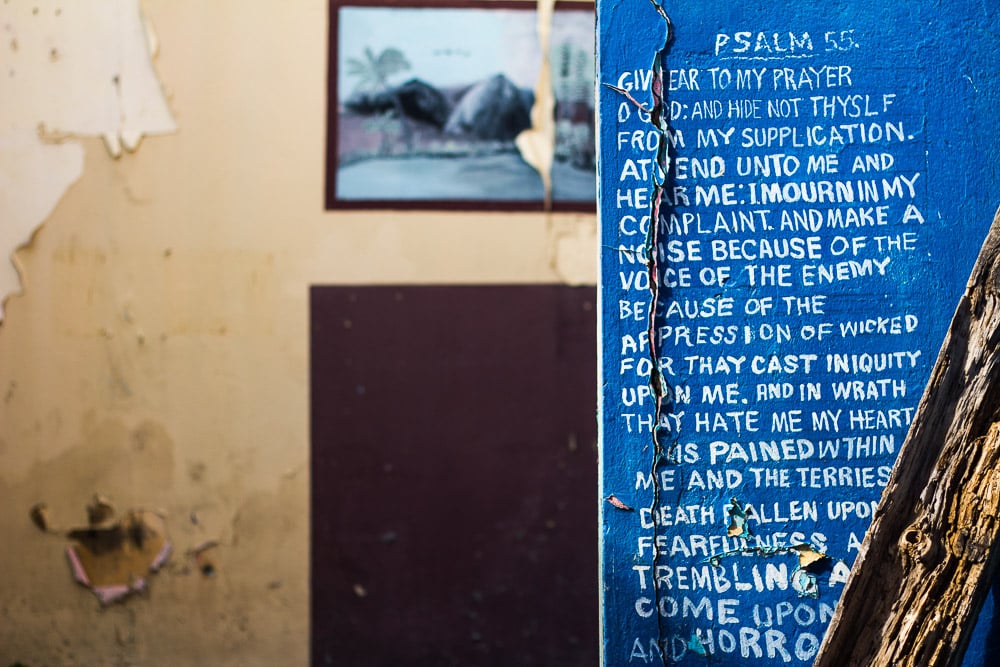 PSALM 55.
GIV EAR TO MY PRAYER
O GOD: AND HIDE NOT THYSLF
FROM MY SUPPLICATION.
ATTEND UNTO ME AND
HEAR ME: I MOURN IN MY
COMPLAINT. AND MAKE A
NOISE BECAUSE OF THE
VOICE OF THE ENEMY
BECAUSE OF THE
APPRESSION OF WICKED
FOR THAY CAST INIQUITY
UPON ME. AND IN WRATH
THAY HATE ME MY HEART
IS PAINED WITHIN
ME AND THE TERRIES
DEATH FALLEN UPON
FEARFULNESS A
TREMBLING A
COME UPON
AND HORRO